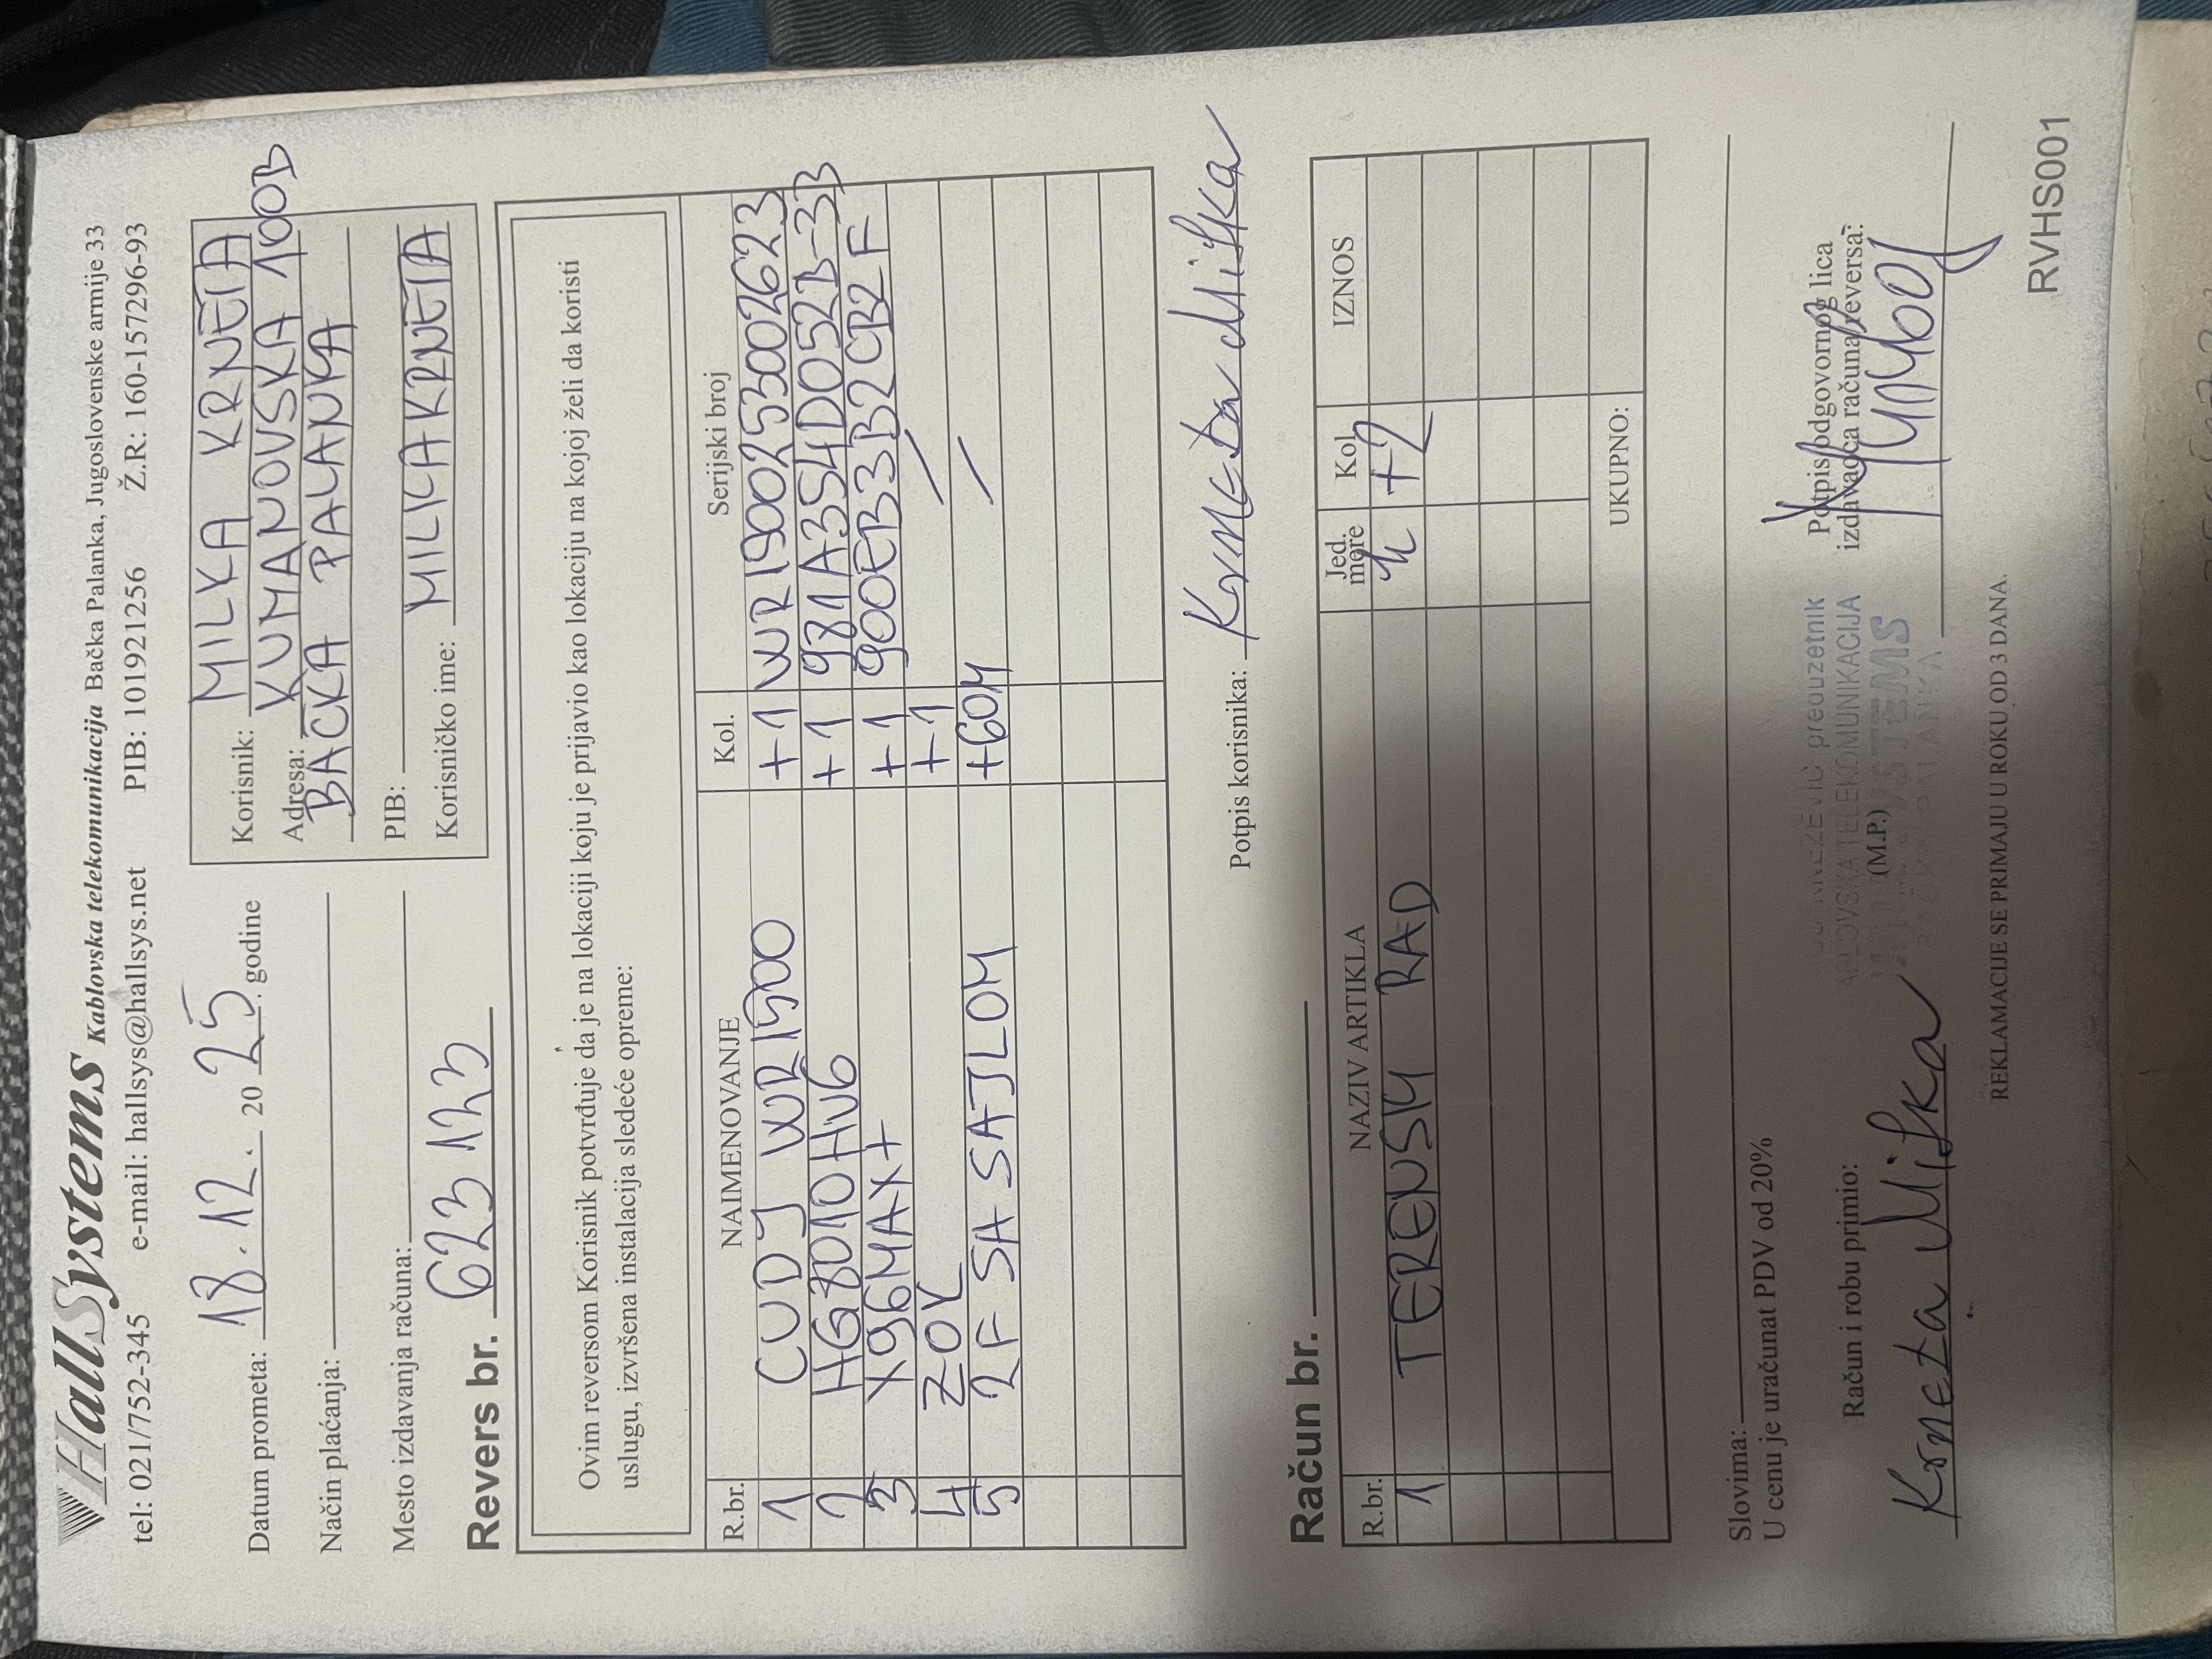 HallSystems Kablovska telekomunikacija Bačka Palanka, Jugoslovenske armije 33
tel: 021/752-345 e-mail: hallsys@hallsys.net PIB: 101921256 Ž.R: 160-157296-93
Datum prometa: 18.12. 20 25. godine
Način plaćanja:
Mesto izdavanja računa:
Korisnik: MILKA KRNETA
Adresa: KUMANOVSKA 100B
BAČKA PALANKA
PIB:
Korisničko ime: MILKAKRNETA
Revers br. 623123
Ovim reversom Korisnik potvrđuje da je na lokaciji koju je prijavio kao lokaciju na kojoj želi da koristi
uslugu, izvršena instalacija sledeće opreme:
R.br. NAIMENOVANJE Kol. Serijski broj
1 CUDY WR1500 +1 WR1500253002623
2 HG8010HV6 +1 981A354D052B-33B
3 X96MAX+ +1 900EB3B2CB2F
4 ZOK +1 /
5 2F SA SAJLOM +60M /
Potpis korisnika: Krneta Milka
Račun br.
R.br. NAZIV ARTIKLA Jed. mere Kol. IZNOS
1 TERENSKI RAD h +2
UKUPNO:
Slovima:
U cenu je uračunat PDV od 20%
Račun i robu primio:
Krneta Milka
(M.P.)
preduzetnik
KABLOVSKA TELEKOMUNIKACIJA
Potpis odgovornog lica
izdavaoca računa/reversa:
REKLAMACIJE SE PRIMAJU U ROKU OD 3 DANA.
RVHS001